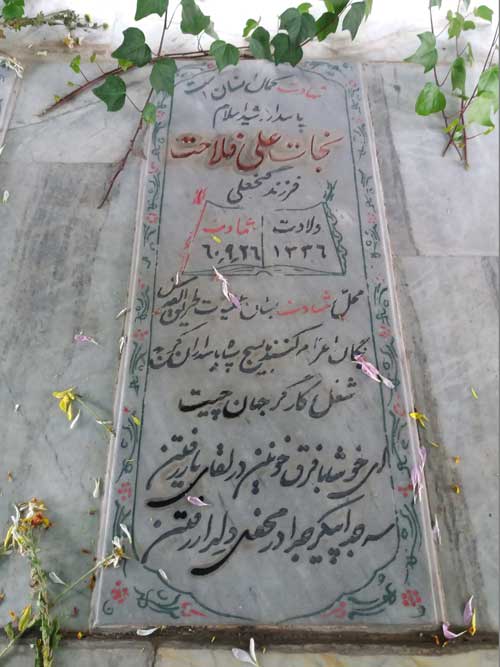 شهادت کمال انسان است
پاسدار شهید اسلام
نجات علی فلاحت
فرزند گنجعلی
ولادت شهادت
۱۳۳۶ ۶۰٫۹٫۲۶
محل شهادت بستان عملیات طریق القدس
یگان اعزام کننده بسیج سپاه پاسداران کرج
شغل کارگر جهان چیت
ای خوشا با فرق خونین در لقای یار رفتن
سر جدا پیکر جدا در محفل دلدار رفتن